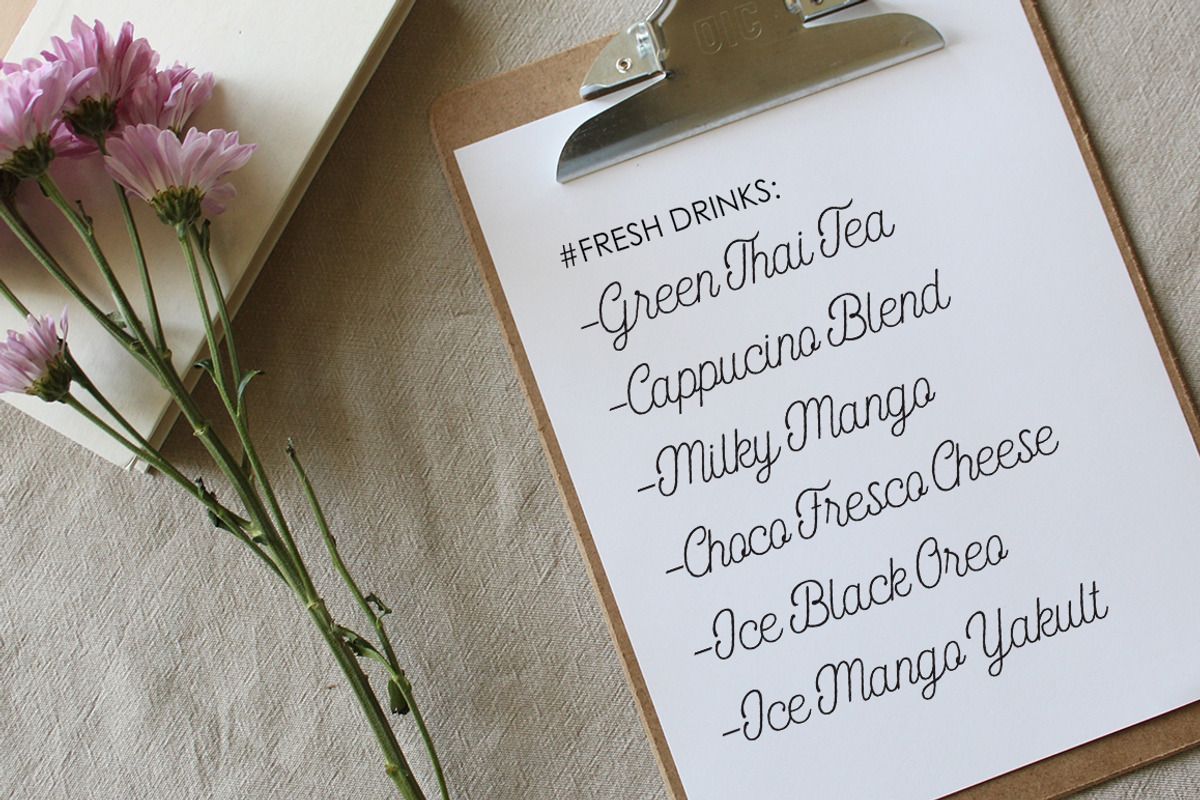 OIC
#FRESH DRINKS:
-Green Thai Tea
-Cappucino Blend
-Milky Mango
-Choco Fresco Cheese
-Ice Black Oreo
-Ice Mango Yakult